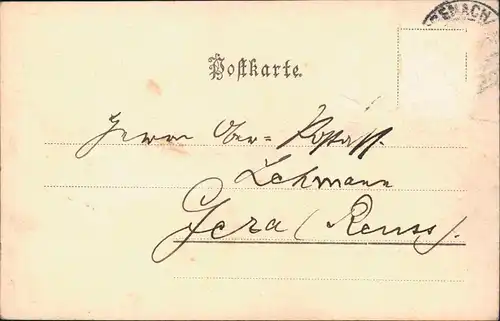 ENACH
Postkarte.
Herrn Ober= Postass.
Lehmann
Gera (Reuss).